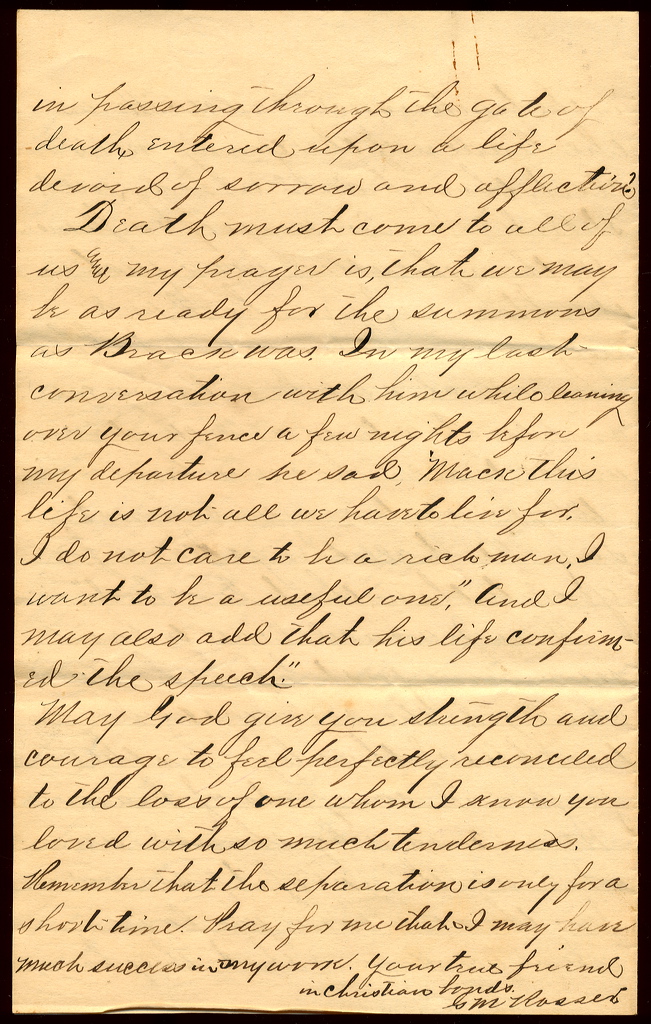 in passing through the gate of
death, entered upon a life
devoid of sorrow and affliction?
Death must come to all of
us and my prayer is, that we may
be as ready for the summons
as Brack was. In my last
conversation with him while leaning
over your fence a few nights before
my departure he said, "Mack this
life is not all we have to live for.
I do not care to be a rich man, I
want to be a useful one," and I
may also add that his life confirm-
ed the speech."
May God give you strength and
courage to feel perfectly reconciled
to the loss of one whom I know you
loved with so much tenderness.
Remember that the separation is only for a
short time. Pray for me that I may have
much success in my work. Your true friend
in Christian bonds.
Rosser